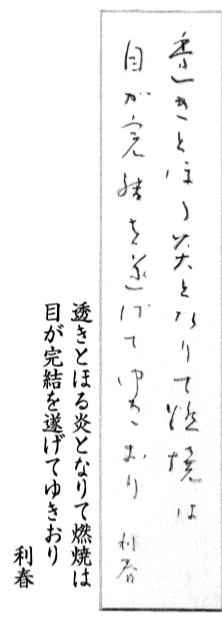 透きとほる炎となりて燃焼は
目が完結を遂げてゆきおり 利春
透きとほる炎となりて燃焼は
目が完結を遂げてゆきおり
利春